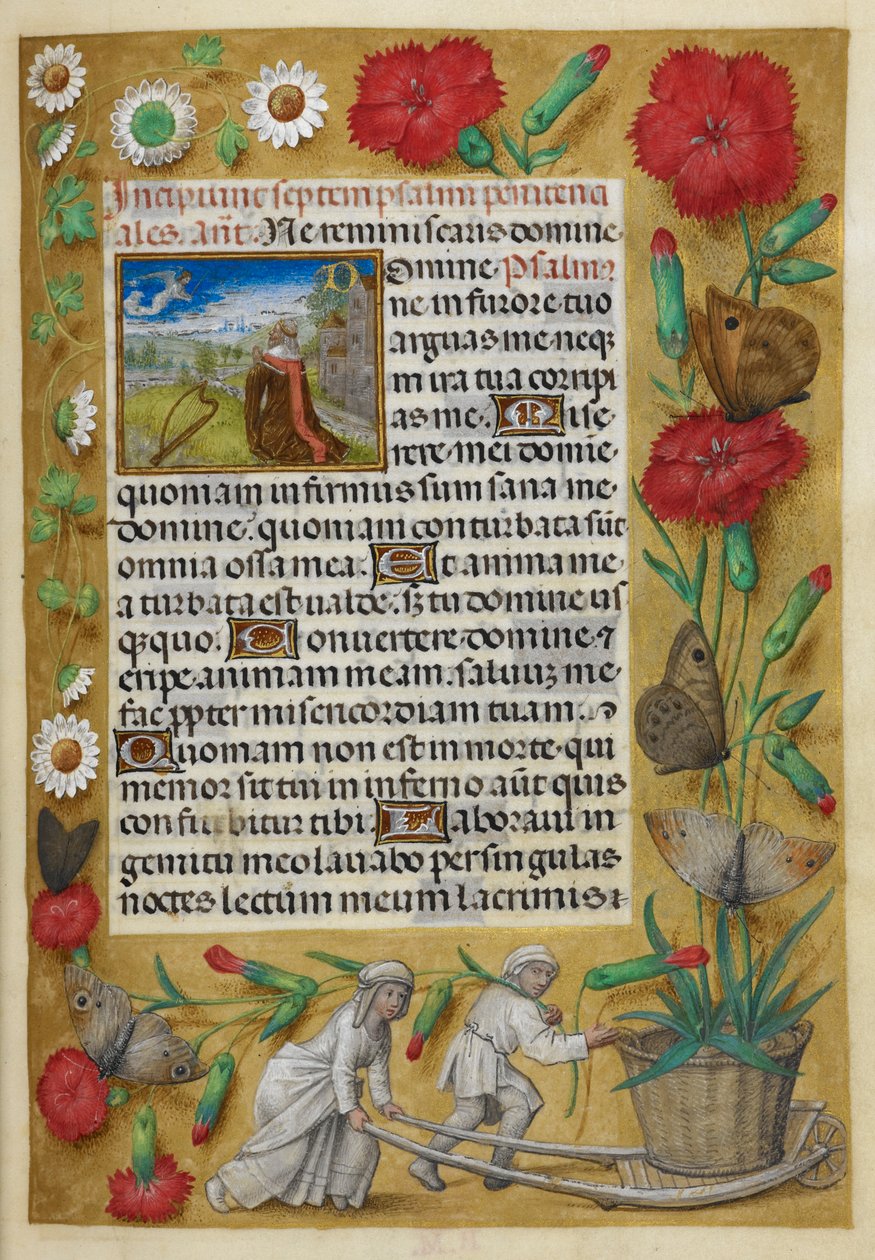 Incipiunt septem psalmi penitenci
ales. añt. Ne reminiscaris domine.
Domine. Psalm9
ne in furore tuo
arguas me. neq3
in ira tua corripi
as me. Mise
rere mei domīe
quoniam infirmus sum sana me
domine. quoniam conturbata sūt
omnia ossa mea. Et anima me
a turbata est ualde. s3 tu domine us
q3quo. Conuertere domine. ⁊
eripe animam meam. saluū me
fac ppter misericordiam tuam.
Quoniam non est in morte qui
memor sit tui in inferno aūt quis
confitebitur tibi. Laboraui in
gemitu meo lauabo per singulas
noctes lectum meum lacrimis ⁊